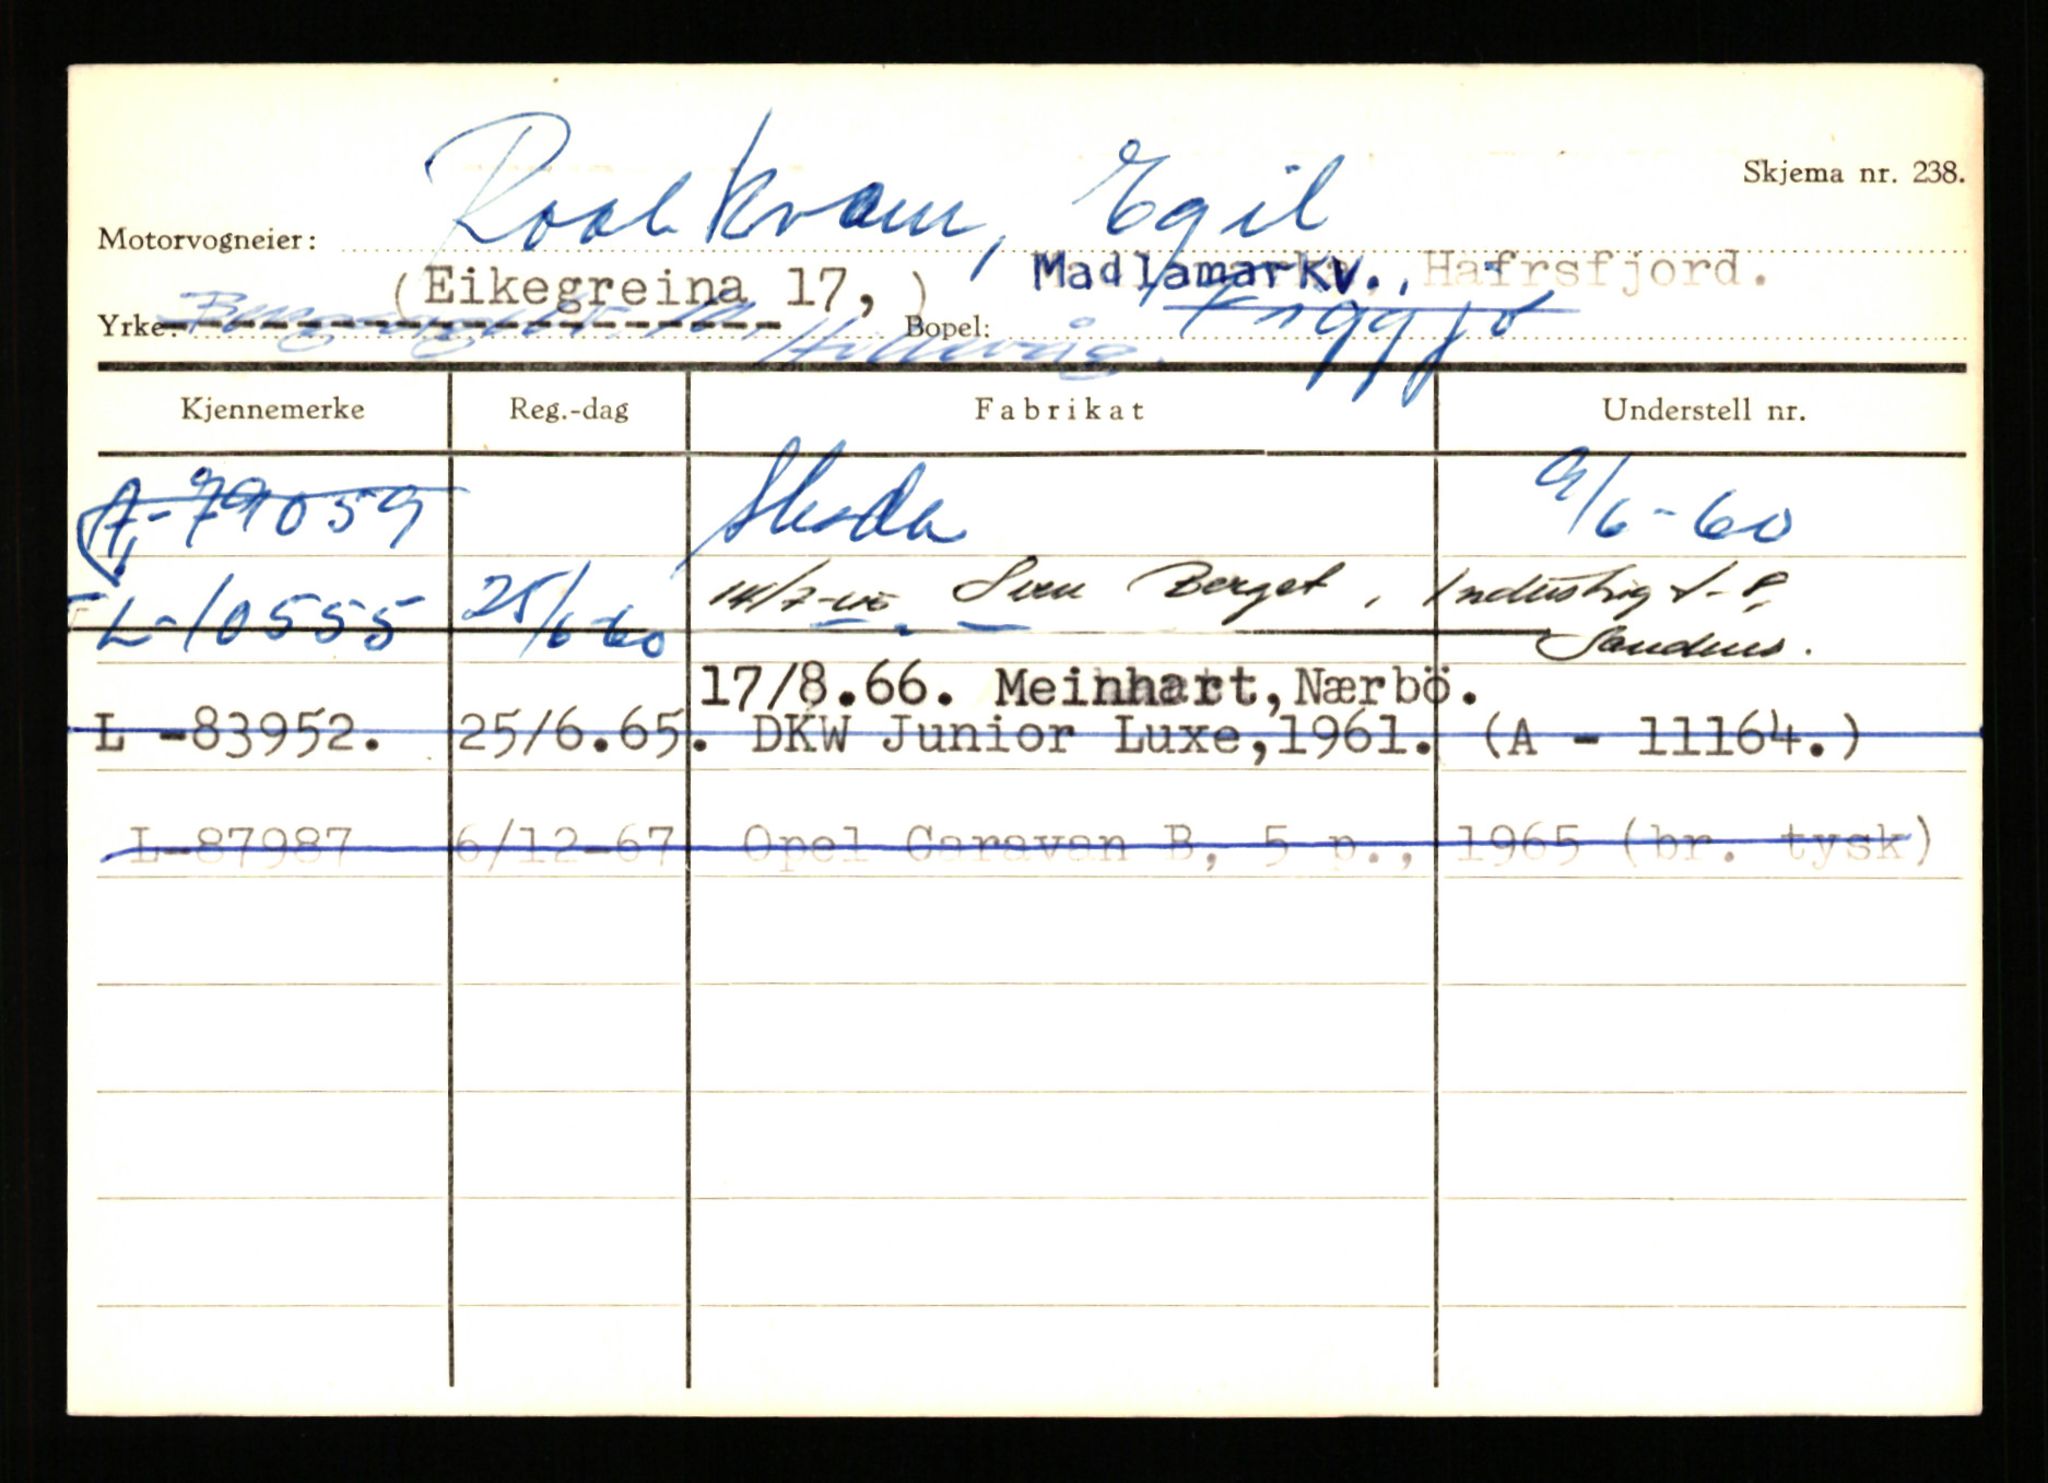 Skjema nr. 238.
Motorvogneier: Roalkvam, Egil
(Eikegreina 17, ) Madlamarkv., Hafrsfjord.
Yrke: Hillevåg. Bopel: Figgjo
Kjennemerke Reg.-dag Fabrikat Understell nr.
A-79059 Skoda 9/6-60
L-10555 25/6-60 14/7-65 Sven Berget, Industrig
Sandnes.
17/8.66. Meinhart, Nærbö.
L -83952. 25/6.65. DKW Junior Luxe, 1961. (A - 11164.)
L-87987 6/12-67 Opel Caravan B, 5 p., 1965 (br. tysk)